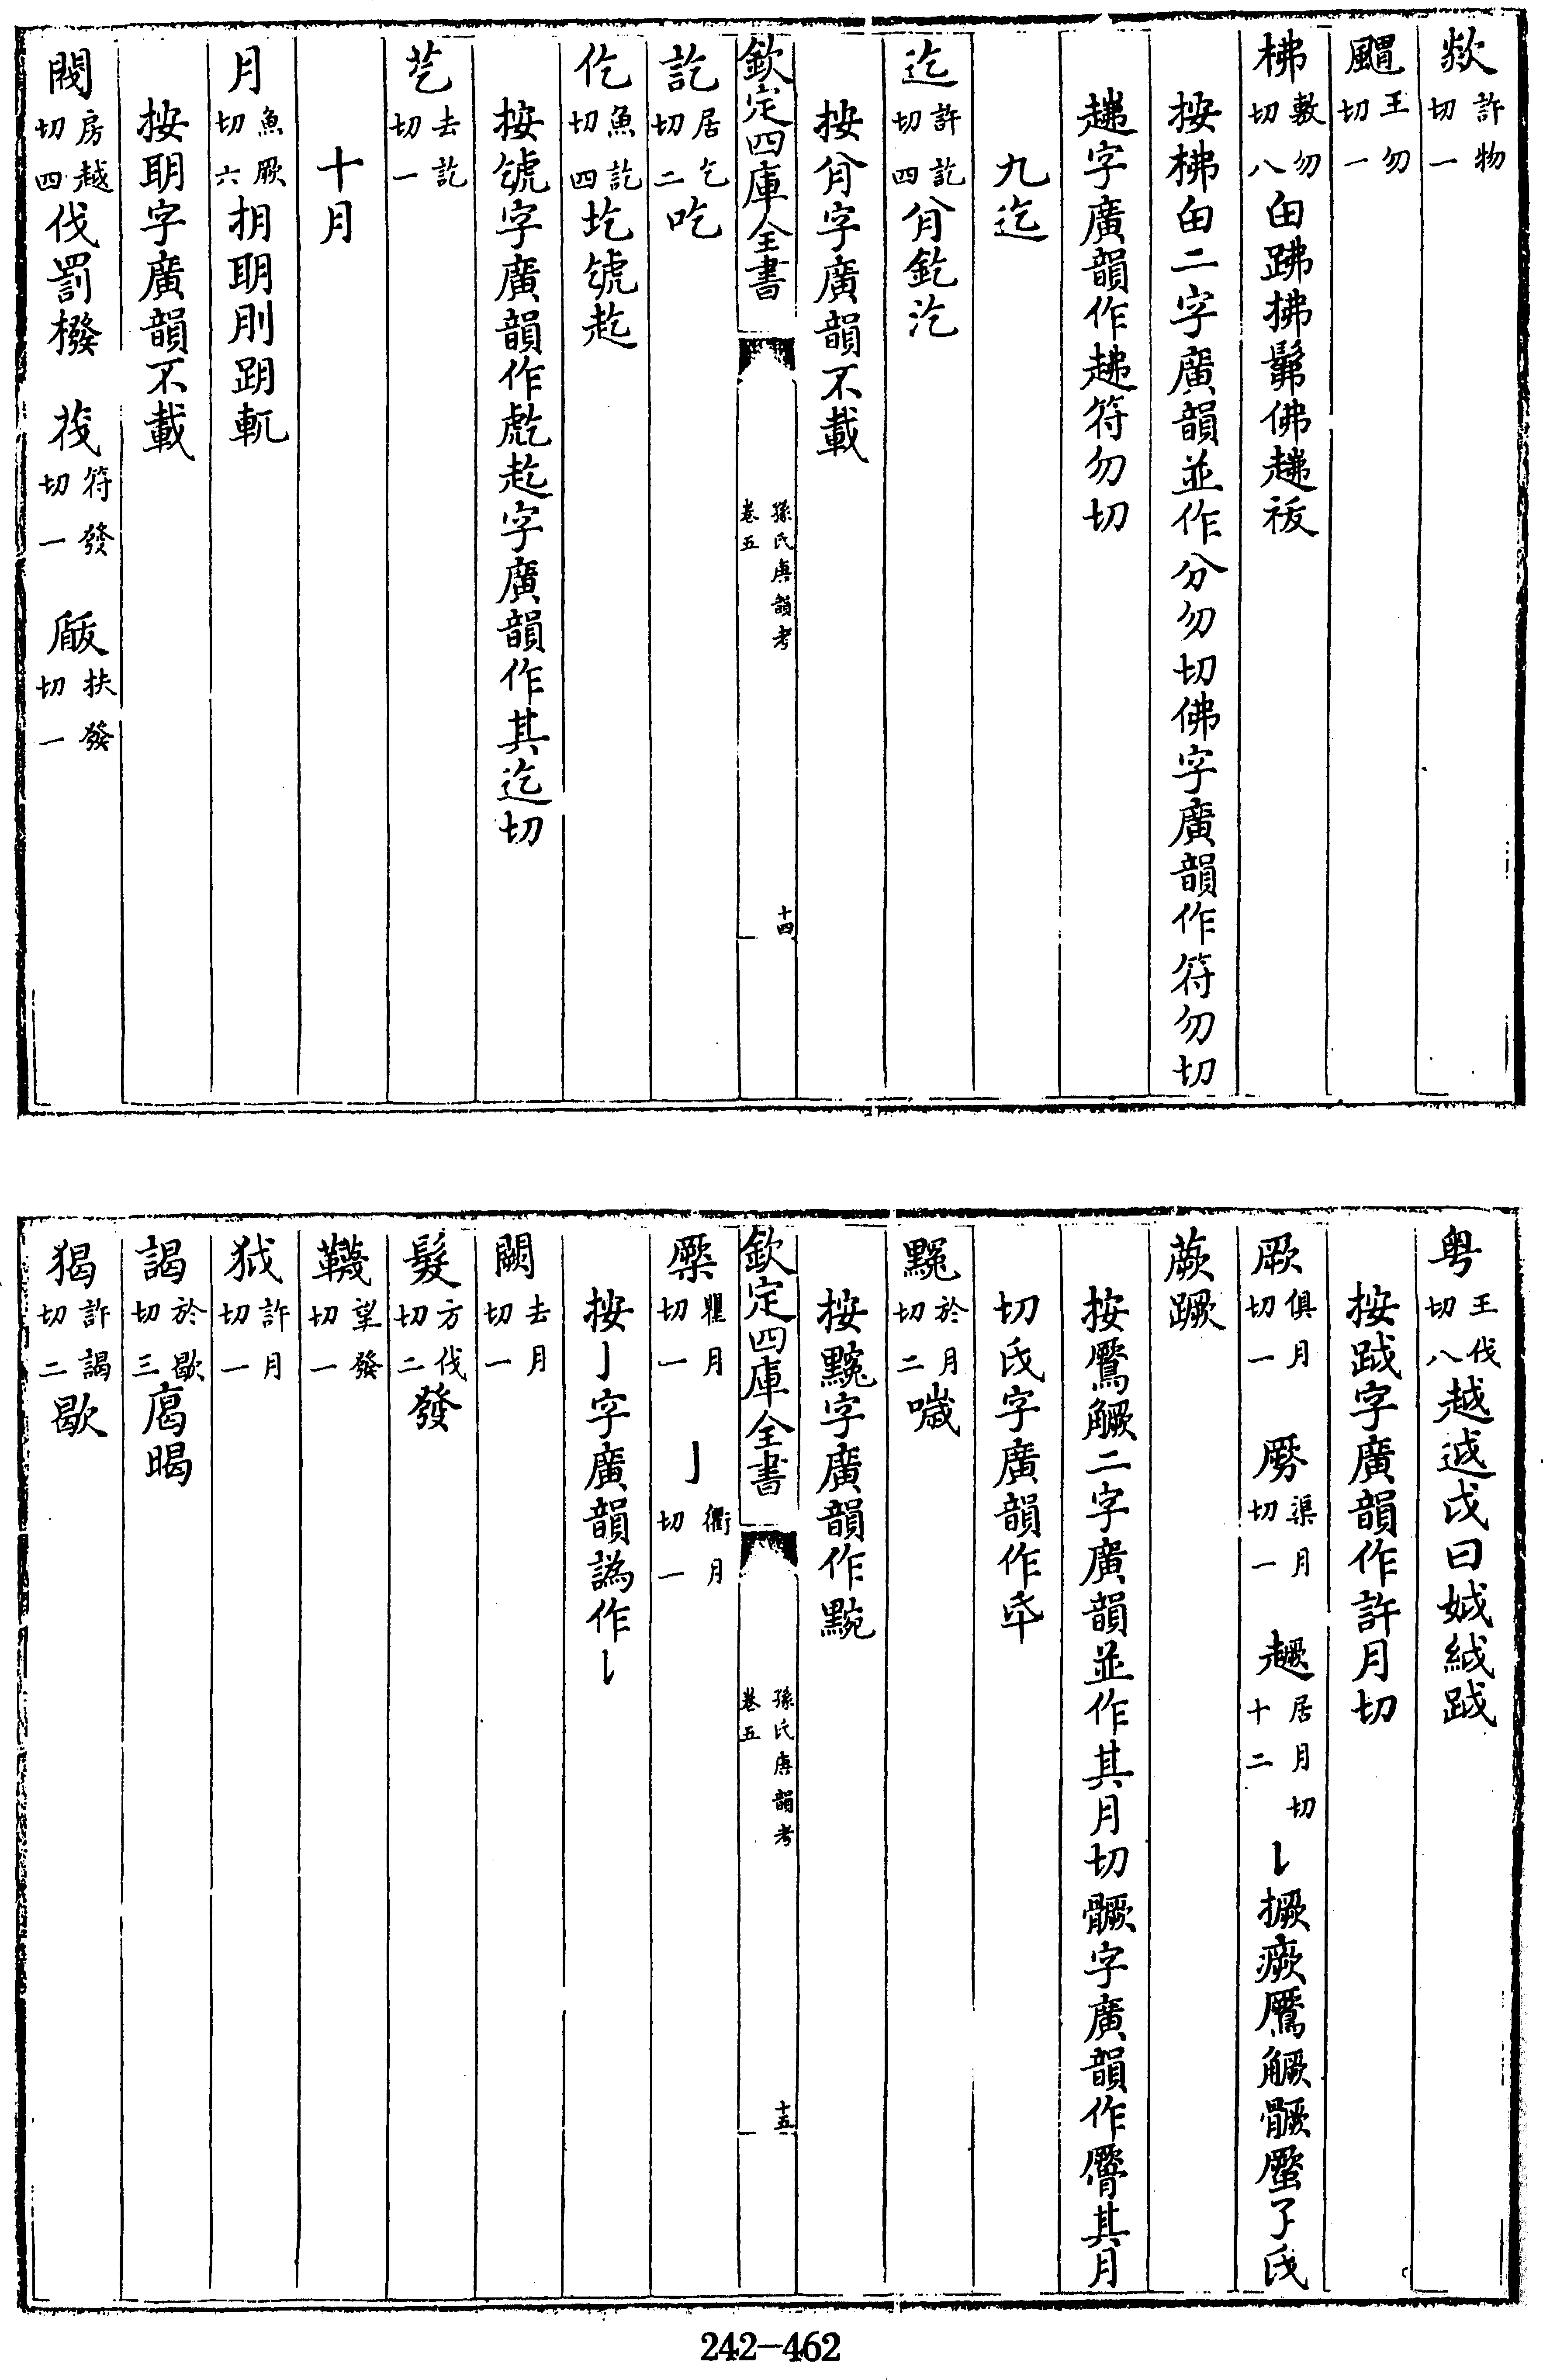 欻許物切一
䬍王勿切一
柫敷勿切八甶跊拂髴佛䞸袚
按柫甶二字廣韻並作分勿切佛字廣韻作符勿切
䞸字廣韻作䞸符勿切
九迄
迄許訖切四㕣釳汔
按㕣字廣韻不載
欽定四庫全書
孫氏唐韻考
卷五
十四
訖居乞切二吃
仡魚訖切四圪虓趷
按虓字廣韻作虼趷字廣韻作其迄切
芞去訖切一
十月
月魚厥切六抈明刖跀軏
按明字廣韻不載
閥房越切四伐罰橃 茷符發切一 瞂扶發切一
粤王伐切八越𨒋戉曰娍絾跋
按跋字廣韻作許月切
厥俱月切一 𠢤渠月切一 趣居月切十二𠄌撅瘚鷢觼𩪗蟨孒氒
蕨蹶
按鷢觼二字廣韻並作其月切𩪗字廣韻作𦠒其月
切氒字廣韻作氒
黦於月切二噦
按黦字廣韻作䵫
欽定四庫全書
孫氏唐韻考
卷五
十五
橜瞿月切一 亅衢月切一
按亅字廣韻譌作𠄌
闕去月切一
髮方伐切二發
韤望發切一
狘許月切一
謁於歇切三㾑暍
猲許謁切二歇
242-462